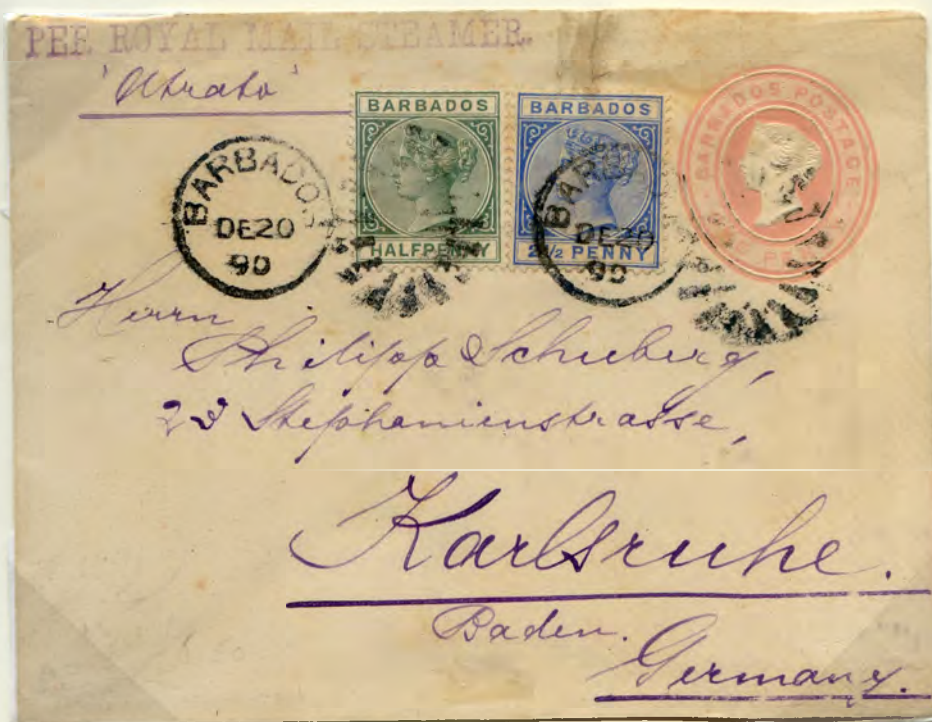 PER ROYAL MAIL STEAMER.
'Atrato'
BARBADOS
HALFPENNY
BARBADOS
2½ PENNY
BARBADOS POSTAGE
ONE PENNY
BARBADOS
DE 20
90
BARBADOS
DE 20
90
Herrn
Philipp Schuberg,
23 Stephanienstrasse,
Karlsruhe.
Baden.
Germany.